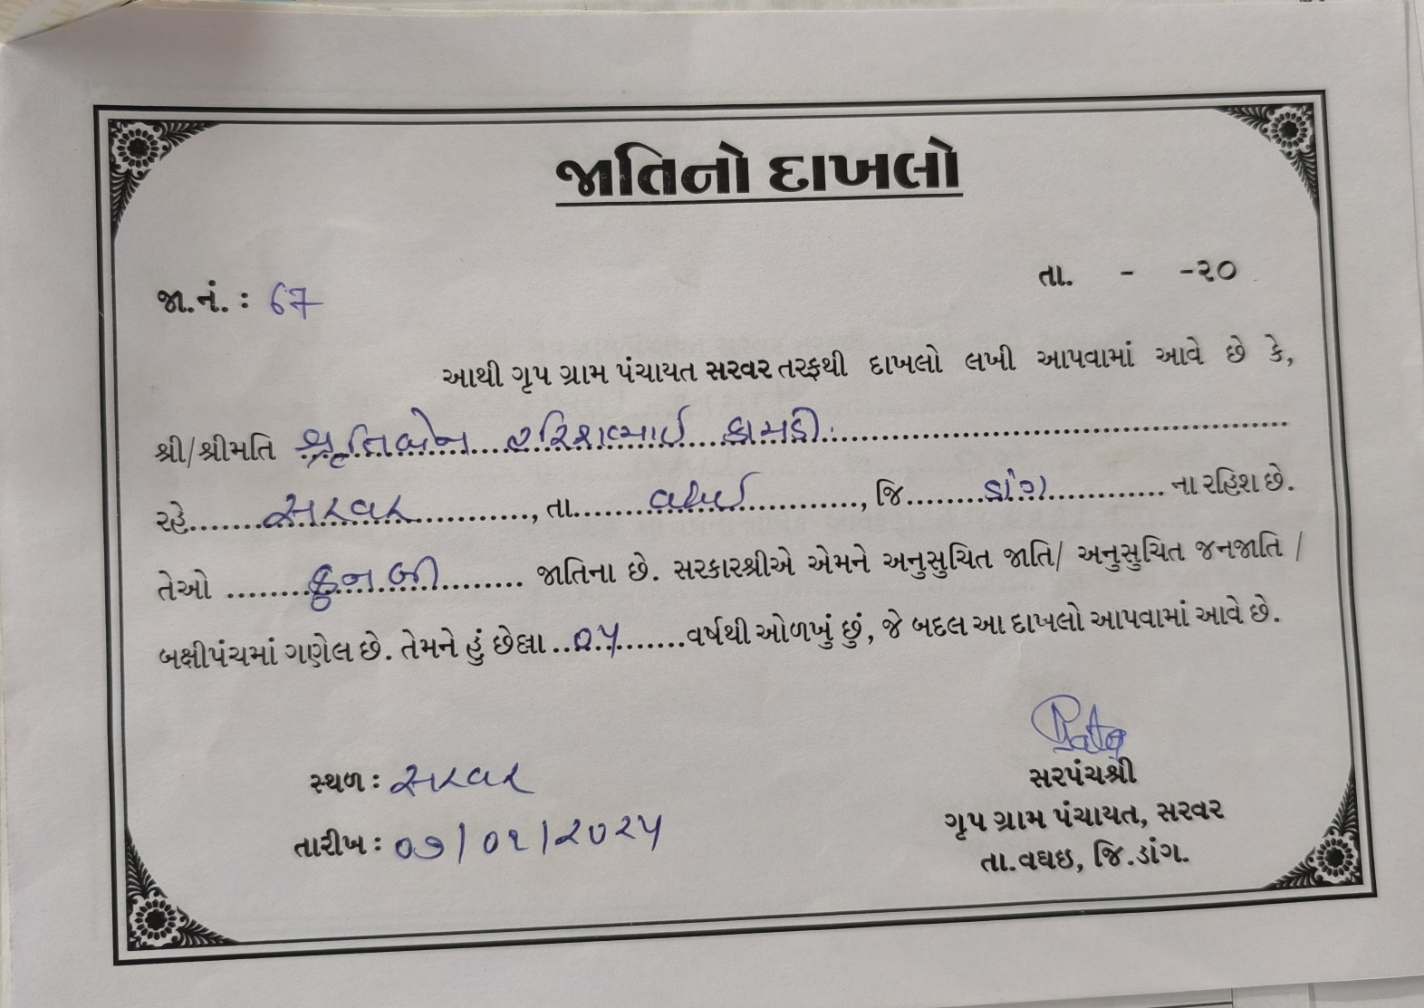 જાતિનો દાખલો
જા.નં. : 67
તા. - -૨૦
આથી ગૃપ ગ્રામ પંચાયત સરવર તરફથી દાખલો લખી આપવામાં આવે છે કે,
શ્રી/શ્રીમતિ શ્રૃતિબેન હરિશભાઈ કામડી
રહે......સરવર......, તા......વઘઈ......, જિ......ડાંગ...... ના રહિશ છે.
તેઓ ......કુનબી...... જાતિના છે. સરકારશ્રીએ એમને અનુસુચિત જાતિ/ અનુસુચિત જનજાતિ /
બક્ષીપંચમાં ગણેલ છે. તેમને હું છેલ્લા ..૦૫......વર્ષથી ઓળખું છું, જે બદલ આ દાખલો આપવામાં આવે છે.
સ્થળ : સરવર
તારીખ : ૦૭/૦૧/૨૦૨૫
સરપંચશ્રી
ગૃપ ગ્રામ પંચાયત, સરવર
તા.વઘઇ, જિ.ડાંગ.